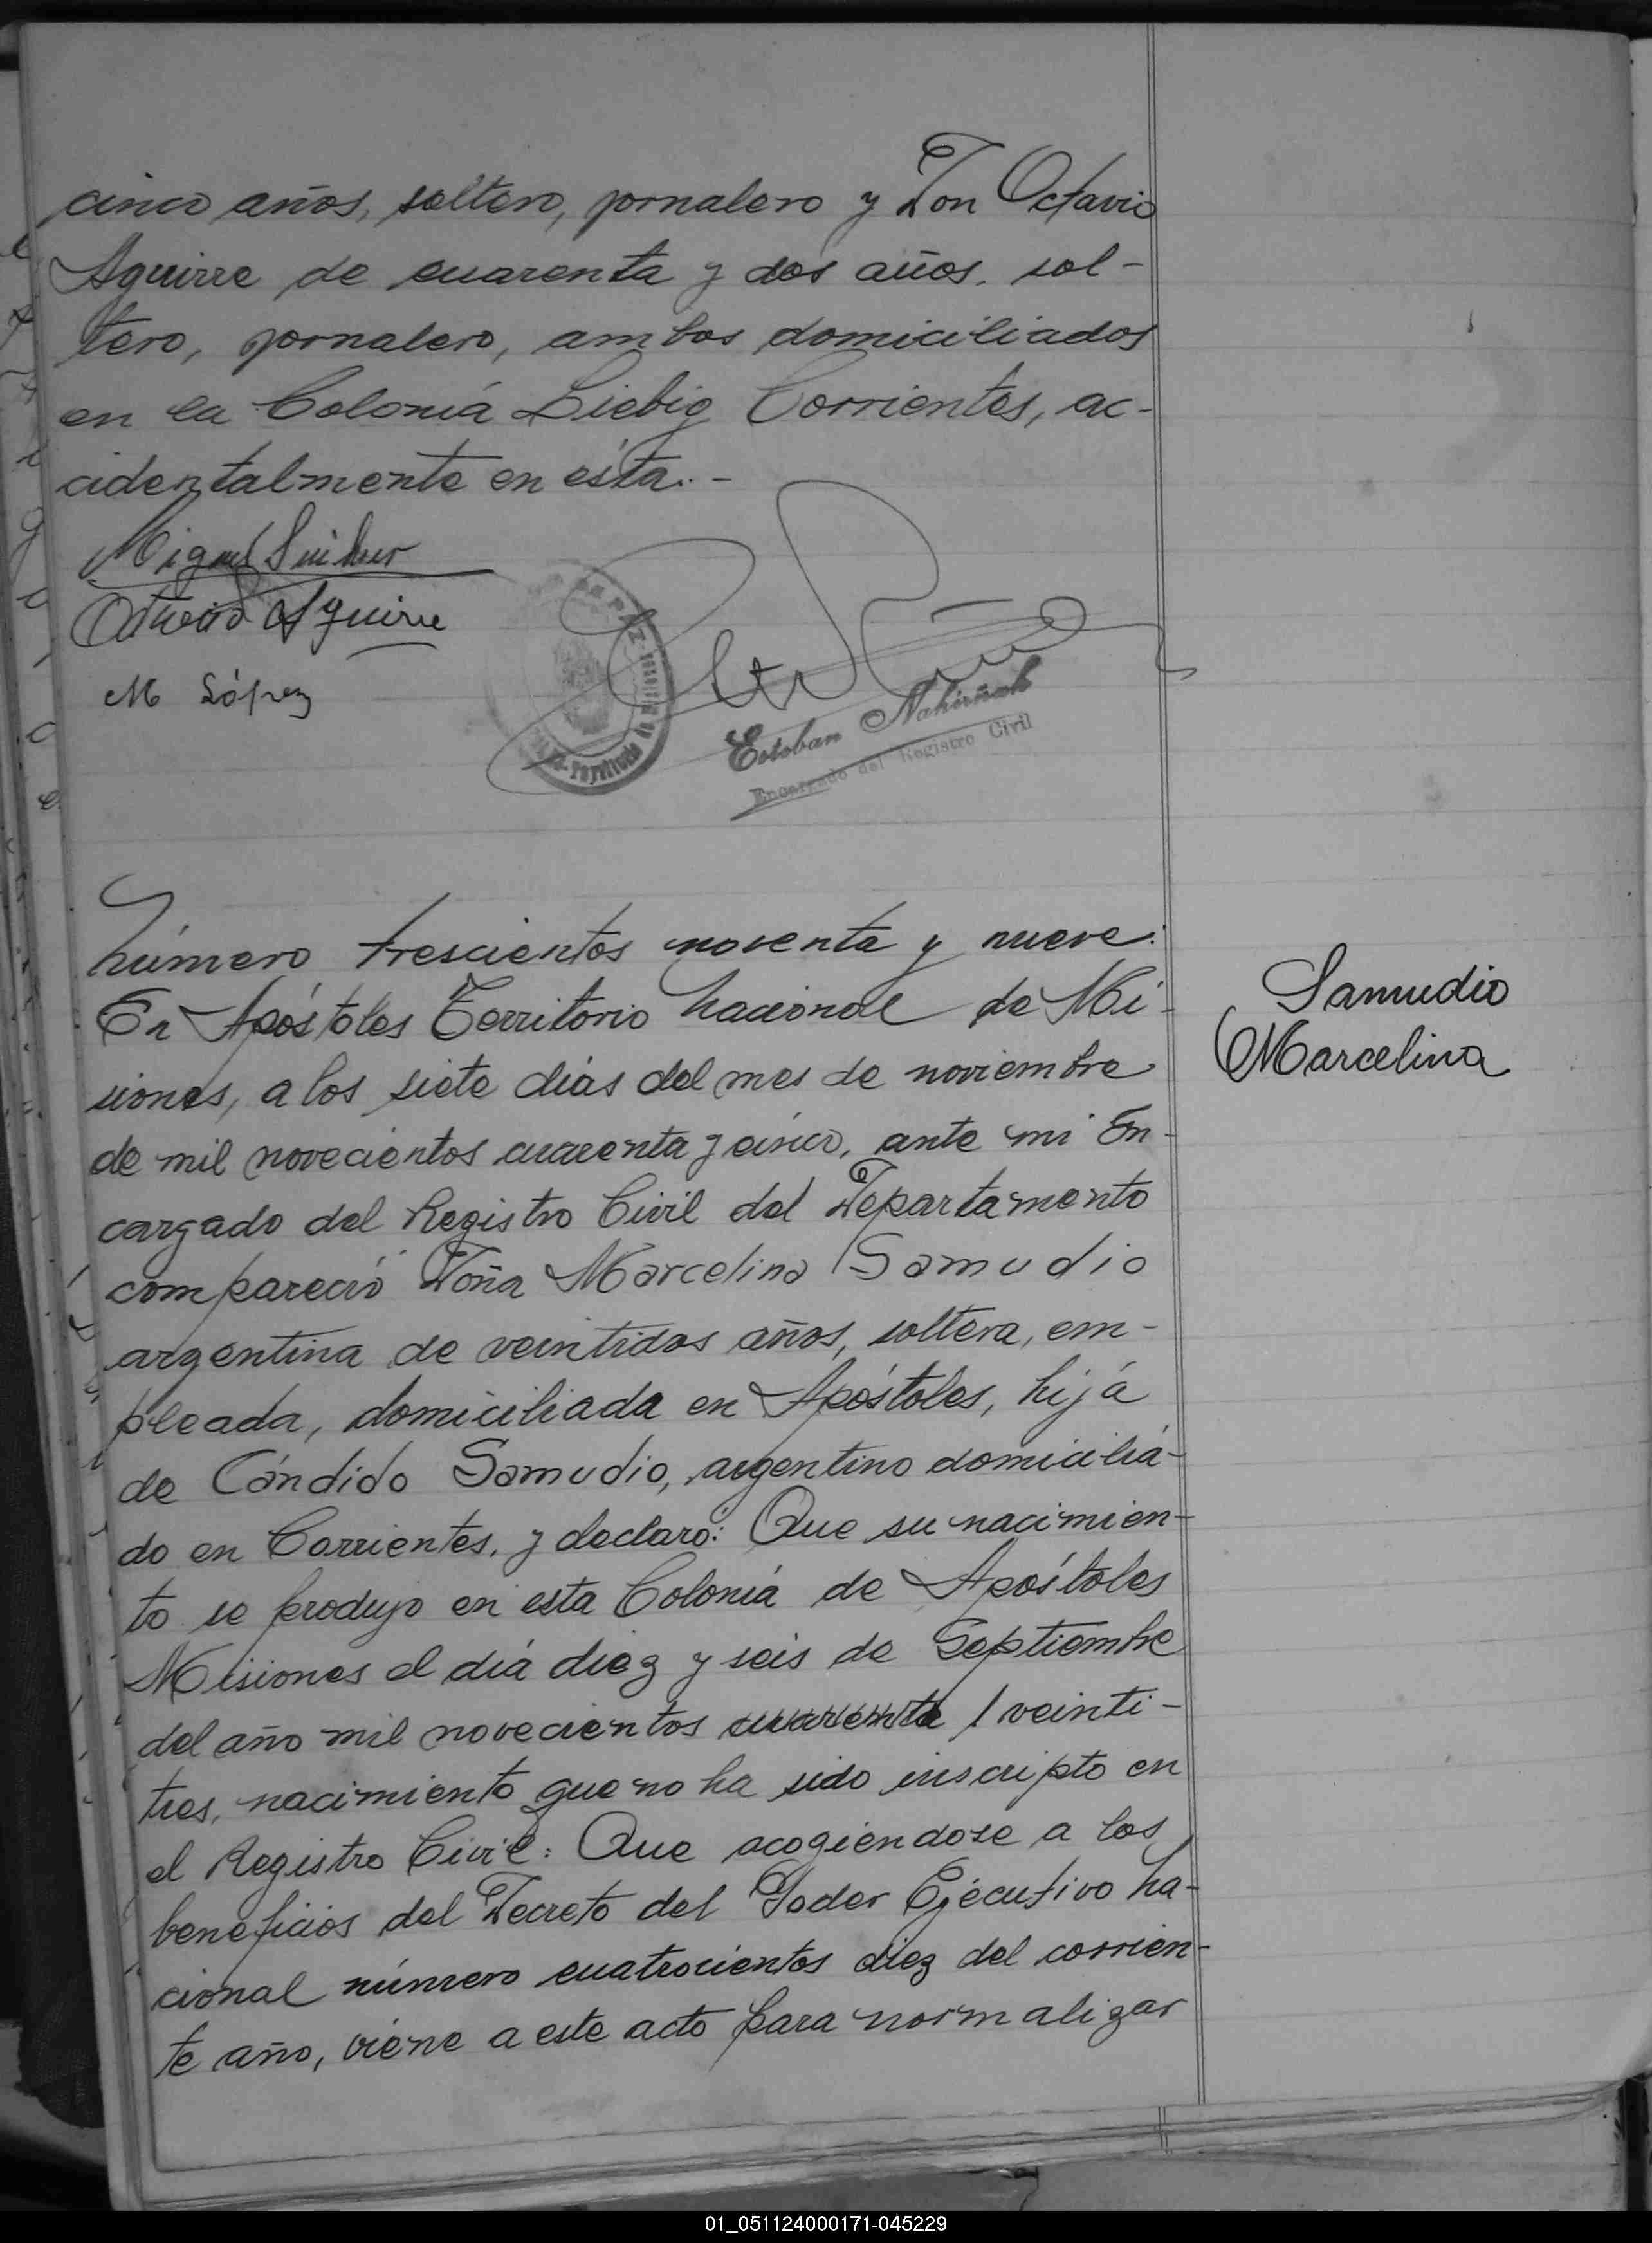 cinco años, soltero, jornalero y Don Octavio
Aguirre de cuarenta y dos años, sol-
tero, jornalero, ambos domiciliados
en la Colonia Liebig Corrientes, ac-
cidentalmente en ésta.-
Miguel
Octavio Aguirre
M López
DE PAZ
Esteban Nahirñak
Encargado del Registro Civil
Número trescientos noventa y nueve:
En Apóstoles Territorio Nacional de Mi-
siones, a los siete días del mes de noviembre
de mil novecientos cuarenta y cinco, ante mi En-
cargado del Registro Civil del Departamento
compareció Doña Marcelina Samudio
argentina de veintidos años, soltera, em-
pleada, domiciliada en Apóstoles, hija
de Cándido Samudio, argentino domicilia-
do en Corrientes, y declaró: Que su nacimien-
to se produjo en esta Colonia de Apóstoles
Misiones el día diez y seis de Septiembre
del año mil novecientos cuarenta / veinti-
tres, nacimiento que no ha sido inscripto en
el Registro Civil: Que acogiendose a los
beneficios del Decreto del Poder Ejecutivo Na-
cional número cuatrocientos diez del corrien-
te año, viene a este acto para normalizar
Samudio
Marcelina
01_051124000171-045229